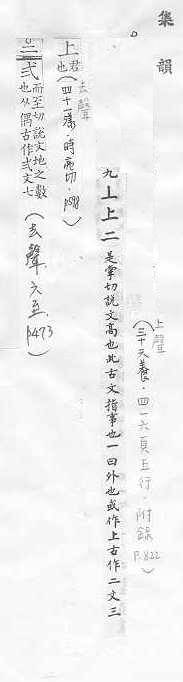 集韻
上聲
(三十六養.四一六頁五行.附錄P.822)
九 丄上二 是掌切說文高也此古文指事也一曰外也或作上古作二文三
去聲
上 君也(四十一漾.時亮切.P.598)
二弍 而至切說文地之數也从偶古作弍文七(去聲.六至.P.473)